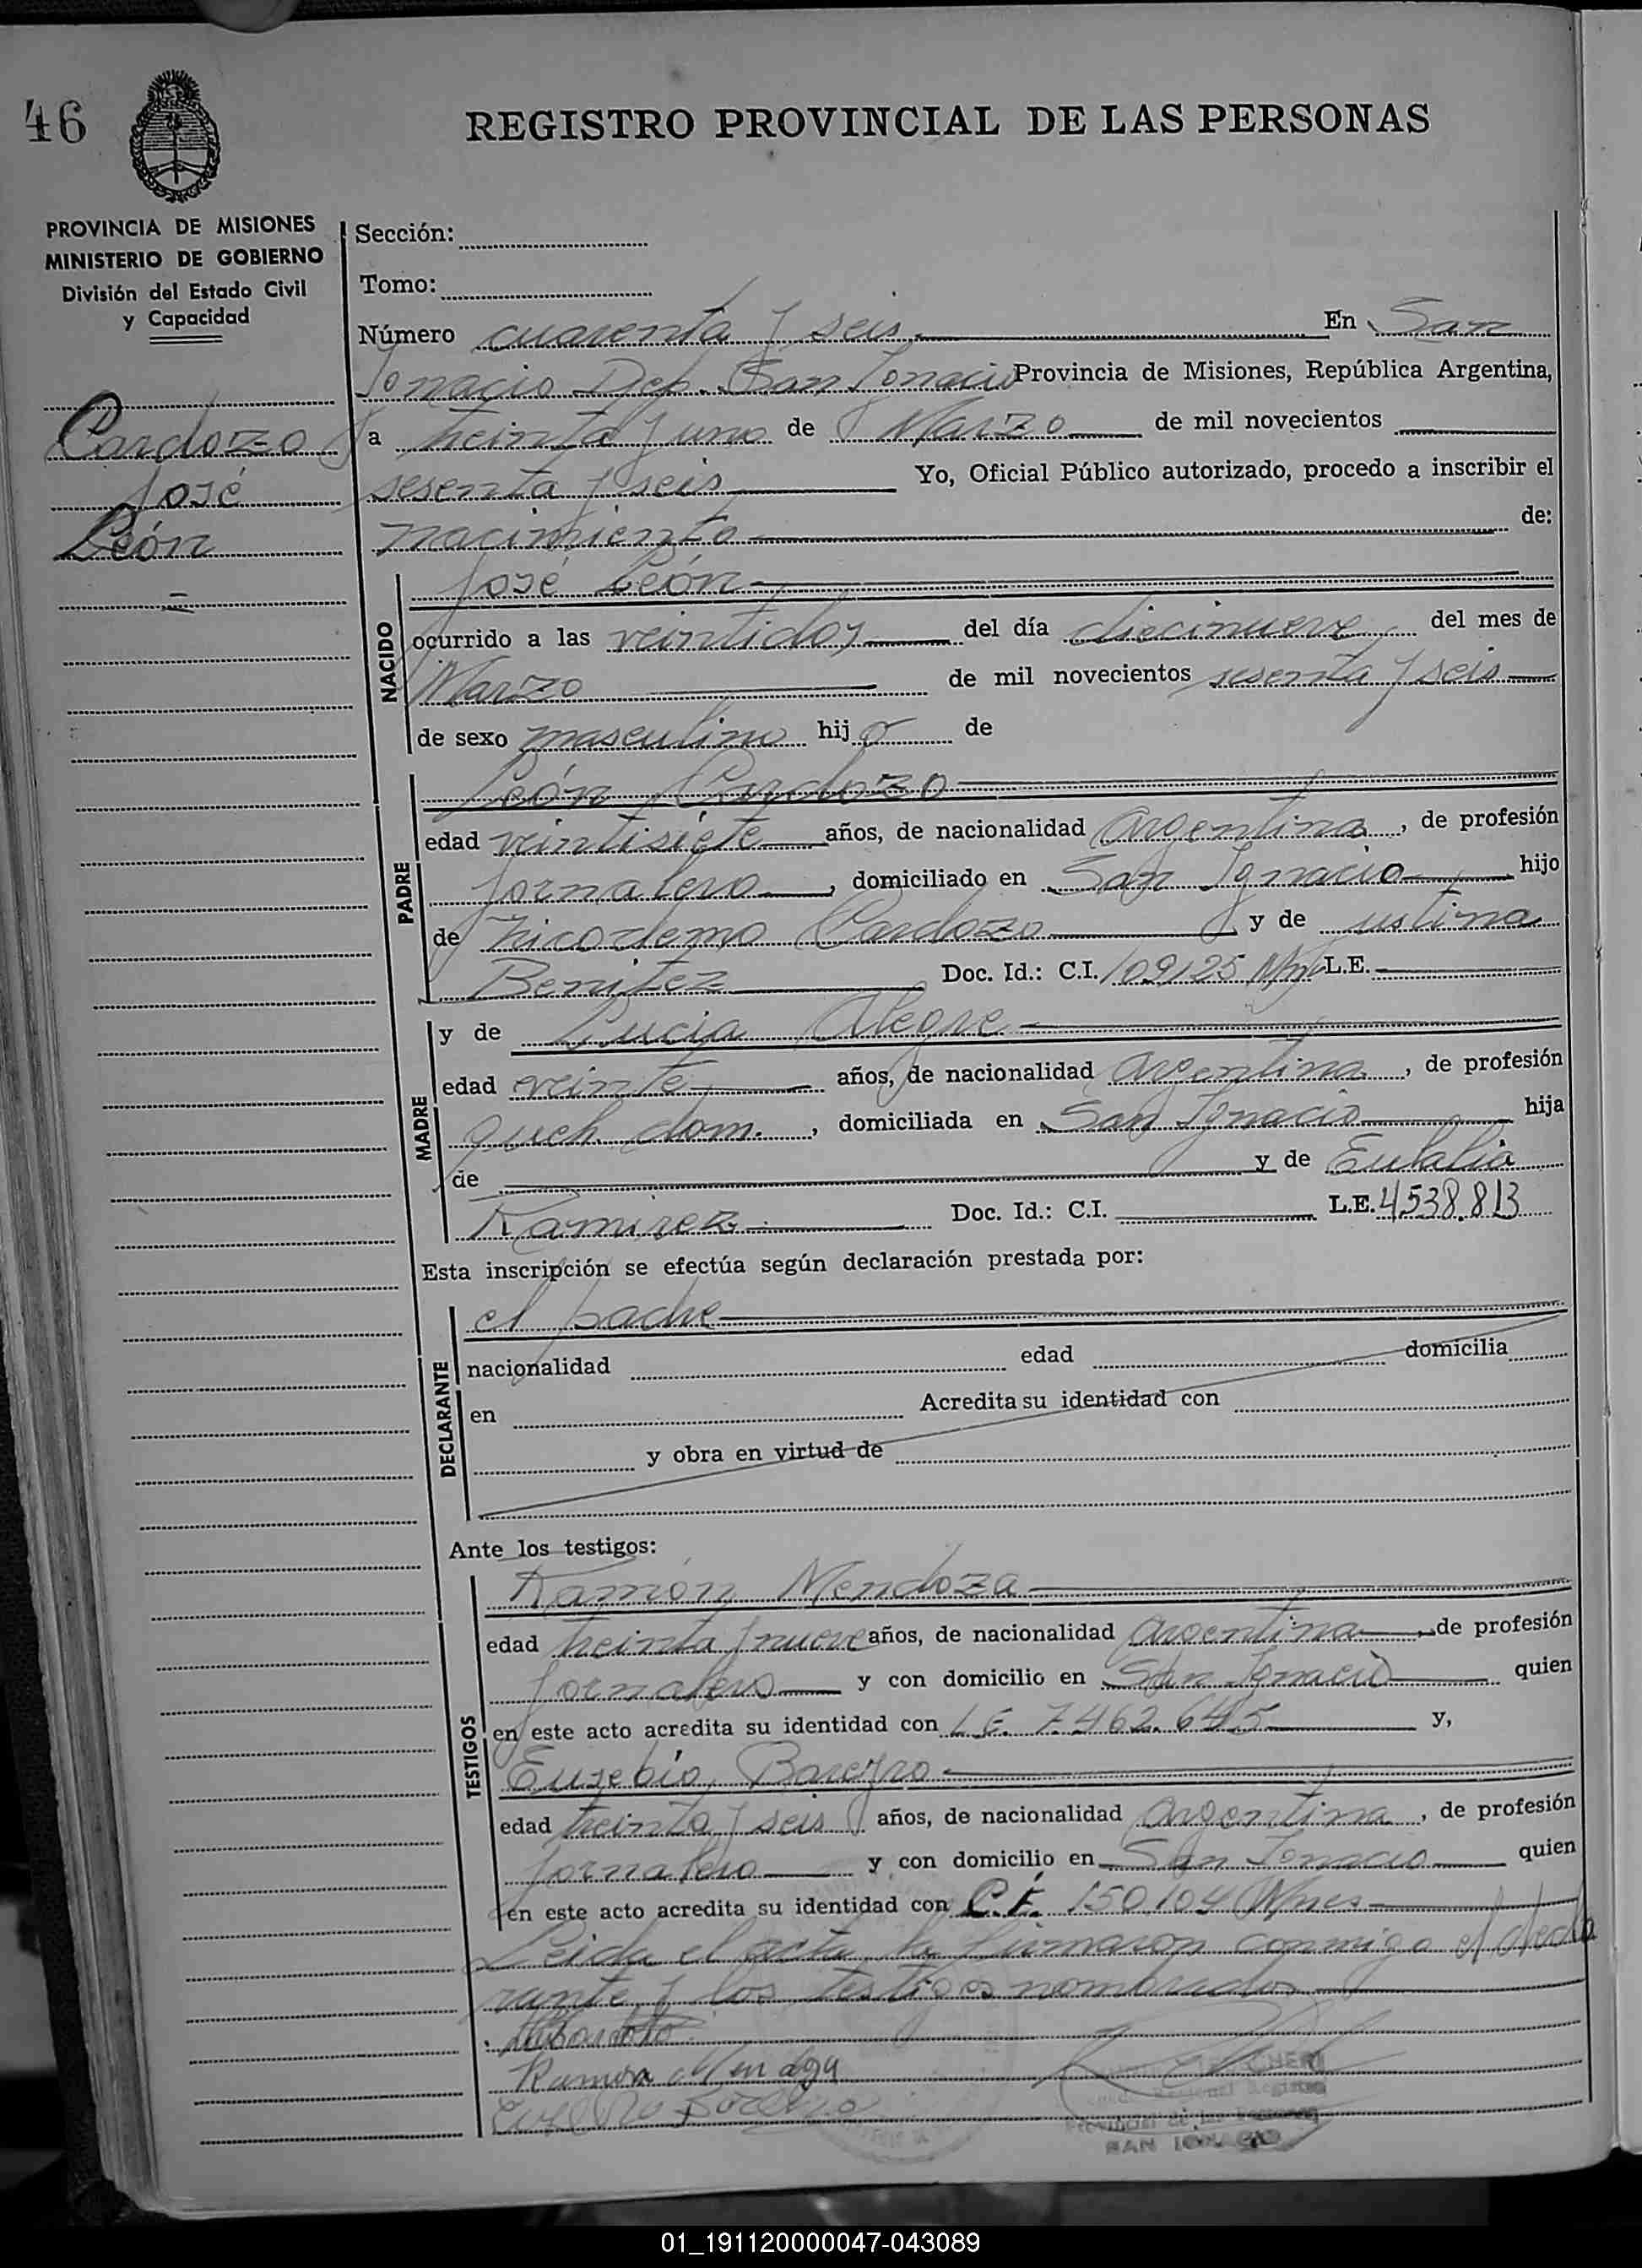 46
REGISTRO PROVINCIAL DE LAS PERSONAS
PROVINCIA DE MISIONES
MINISTERIO DE GOBIERNO
División del Estado Civil
y Capacidad
Cardozo
José
León
Sección:
Tomo:
Número cuarenta y seis En San
Ignacio Dep. San Ignacio Provincia de Misiones, República Argentina,
a treinta y uno de Marzo de mil novecientos
sesenta y seis Yo, Oficial Público autorizado, procedo a inscribir el
nacimiento de:
NACIDO
José León
ocurrido a las veintidos del día diecinueve del mes de
Marzo de mil novecientos sesenta y seis
de sexo masculino hijo de
PADRE
León Cardozo
edad veintisiete años, de nacionalidad Argentina, de profesión
Jornalero, domiciliado en San Ignacio hijo
de Nicodemo Cardozo y de Justina
Benitez Doc. Id.: C.I. 109125 L.E.
MADRE
y de Lucia Alegre
edad veinte años, de nacionalidad Argentina, de profesión
queh. dom., domiciliada en San Ignacio hija
de y de Eulalia
Ramirez Doc. Id.: C.I. L.E. 4538.813
Esta inscripción se efectúa según declaración prestada por:
DECLARANTE
el padre
nacionalidad edad domicilia
en Acredita su identidad con
y obra en virtud de
Ante los testigos:
TESTIGOS
Ramón Mendoza
edad treinta y nueve años, de nacionalidad Argentina de profesión
Jornalero y con domicilio en San Ignacio quien
en este acto acredita su identidad con L.E. 7.462.645 y,
Eusebio
edad treinta y seis años, de nacionalidad Argentina, de profesión
Jornalero y con domicilio en San Ignacio quien
en este acto acredita su identidad con C.I. 150.104 Mnes
Leida el acta la firmaron conmigo el decla
rante y los testigos nombrados
Ramon Mendoza
SAN IGNACIO
01_191120000047-043089